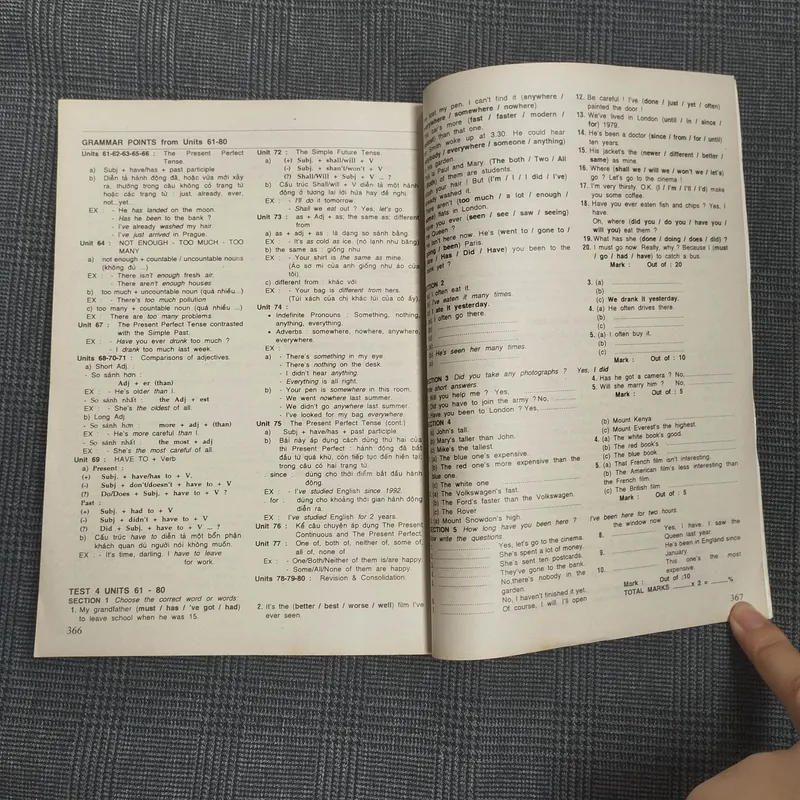 GRAMMAR POINTS from Units 61-80
Units 61-62-63-65-66 : The Present Perfect
Tense.
a) Subj + have/has + past participle
b) Diễn tả hành động đã, hoặc vừa mới xảy
ra, thường trong câu không có trạng từ
hoặc các trạng từ : just, already, ever,
not...yet...
EX : - He has landed on the moon.
- Has he been to the bank ?
- I've already washed my hair
- I've just arrived in Prague.
Unit 64 : NOT ENOUGH - TOO MUCH - TOO
MANY
a) not enough + countable / uncountable nouns
(không đủ ...)
EX : - There isn't enough fresh air.
- There aren't enough houses
b) too much + uncountable noun (quá nhiều ...)
EX : - There's too much pollution
c) too many + countable noun (quá nhiều...)
EX : - There are too many problems
Unit 67 : The Present Perfect Tense contrasted
with the Simple Past.
EX : - Have you ever drunk too much ?
- I drank too much last week.
Units 68-70-71 : Comparisons of adjectives.
a) Short Adj.
- So sánh hơn :
Adj + er (than)
EX : - He's older than I.
- So sánh nhất : the Adj + est
EX : - She's the oldest of all.
b) Long Adj
- So sánh hơn : more + adj + (than)
EX : - He's more careful than I.
- So sánh nhất : the most + adj
EX : - She's the most careful of all.
Unit 69 : HAVE TO + Verb
a) Present :
(+) Subj. + have/has to + V.
(-) Subj + don't/doesn't + have to + V
(?) Do/Does + Subj. + have to + V ?
Past :
(+) Subj. + had to + V
(-) Subj + didn't + have to + V
(?) Did + Subj. + have to + V ... ?
b) Cấu trúc have to diễn tả một bổn phận
khách quan dù người nói không muốn.
EX : - It's time, darling. I have to leave
for work.
Unit 72 : The Simple Future Tense.
a) (+) Subj. + shall/will + V
(-) Subj. + shan't/won't + V
(?) Shall/Will + Subj + V ... ?
b) Cấu trúc Shall/will + V diễn tả một hành
động ở tương lai lời hứa hay đề nghị
EX : - I'll do it tomorrow.
- Shall we eat out ? Yes, let's go.
Unit 73 : as + Adj + as; the same as; different
from
a) as + adj + as : là dạng so sánh bằng
EX : - It's as cold as ice. (nó lạnh như băng)
b) the same as : giống như
EX : - Your shirt is the same as mine.
(Áo sơ mi của anh giống như áo của
tôi).
c) different from : khác với
EX : - Your bag is different from hers.
(Túi xách của chị khác túi của cô ấy).
Unit 74 :
• Indefinite Pronouns : Something, nothing,
anything, everything.
• Adverbs : somewhere, nowhere, anywhere,
everywhere.
EX :
a) - There's something in my eye
- There's nothing on the desk.
- I didn't hear anything.
- Everything is all right.
b) - Your pen is somewhere in this room.
- We went nowhere last summer.
- We didn't go anywhere last summer.
- I've looked for my bag everywhere.
Unit 75 The Present Perfect Tense (cont.)
a) Subj + have/has + past participle.
b) Bài này áp dụng cách dùng thứ hai của
thì Present Perfect : hành động đã bắt
đầu từ quá khứ, còn tiếp tục đến hiện tại,
trong câu có hai trạng từ.
. since : dùng cho thời điểm bắt đầu hành
động.
EX : - I've studied English since 1992.
. for : dùng cho khoảng thời gian hành động
diễn ra.
EX : - I've studied English for 2 years.
Unit 76 : Kể câu chuyện áp dụng The Present
Continuous and The Present Perfect.
Unit 77 : One of, both of, neither of, some of,
all of, none of
Ex : - One/Both/Neither of them is/are happy.
- Some/All/None of them are happy.
Units 78-79-80 : Revision & Consolidation.
TEST 4 UNITS 61 - 80
SECTION 1 Choose the correct word or words:
1. My grandfather (must / has / 've got / had)
to leave school when he was 15.
2. It's the (better / best / worse / well) film I've
ever seen.
366
lost my pen. I can't find it (anywhere /
everywhere / somewhere / nowhere)
car's more (fast / faster / modern /
than that one.
Smith woke up at 3.30. He could hear
everybody / everywhere / someone / anything)
garden.
is Paul and Mary. (The both / Two / All
of them are students.
your hair ! But (I'm / I / I did / I've)
already washed it.
aren't (too much / a lot / enough /
flats in London.
Have you ever (seen / see / saw / seeing)
Queen ?
isn't here now. He's (went to / gone to /
going / been) Paris.
/ Has / Did / Have) you been to the
yet ?
12. Be careful ! I've (done / just / yet / often)
painted the door !
13. We've lived in London (until / in / since /
for) 1979.
14. He's been a doctor (since / from / for / until)
ten years.
15. His jacket's the (newer / different / better /
same) as mine.
16. Where (shall we / will we / won't we / let's)
go ? Let's go to the cinema !
17. I'm very thirsty. O.K. (I / I'm / I'll / I'd) make
you some coffee.
18. Have you ever eaten fish and chips ? Yes, I
have.
Oh, where (did you / do you / have you /
will you) eat them ?
19. What has she (done / doing / does / did) ?
20. I must go now. Really, why ? Because I (must
/ go / had / have) to catch a bus.
Mark : Out of : 20
SECTION 2
I often eat it.
I've eaten it many times.
I ate it yesterday.
I often go there.
He's seen her many times.
3. (a)
(b)
(c) We drank it yesterday.
4. (a) He often drives there.
(b)
(c)
5. (a) I often buy it.
(b)
(c)
Mark : Out of : 10
SECTION 3 Did you take any photographs ? Yes, I did
short answers.
Will you help me ? Yes,
Did you have to join the army ? No,
Have you been to London ? Yes,
4. Has he got a camera ? No,
5. Will she marry him ? No,
Mark : Out of : 5
SECTION 4
a) John's tall.
b) Mary's taller than John.
c) Mike's the tallest
a) The blue one's expensive.
b) The red one's more expensive than the
blue one.
c) The white one
a) The Volkswagen's fast.
b) The Ford's faster than the Volkswagen.
c) The Rover
(a) Mount Snowdon's high.
(b) Mount Kenya
(c) Mount Everest's the highest.
4. (a) The white book's good.
(b) The red book's
(c) The blue book
5. (a) That French film isn't interesting.
(b) The American film's less interesting than
the French film.
(c) The British film
Mark : Out of : 5
SECTION 5 How long have you been here ? I've been here for two hours.
write the questions.
Yes, let's go to the cinema.
She's spent a lot of money.
She's sent ten postcards.
They've gone to the bank.
No,there's nobody in the
garden.
No, I haven't finished it yet.
Of course, I will. I'll open
the window now
8. Yes, I have. I saw the
Queen last year.
9. He's been in England since
January.
10. This one's the most
expensive.
Mark : Out of :10
TOTAL MARKS x 2 = %
367